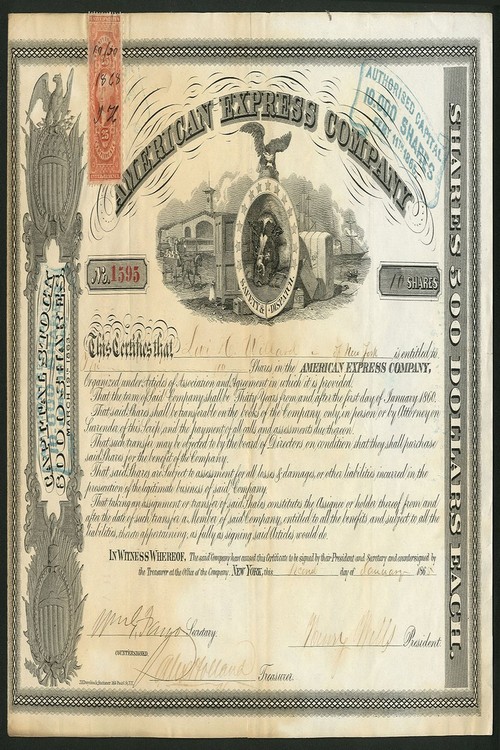 10/20
1868
AUTHORISED CAPITAL
10,000 SHARES
AMERICAN EXPRESS COMPANY
SAFETY & DISPATCH
No. 1595
10 SHARES
This Certifies that Levi is entitled to
10 Shares in the AMERICAN EXPRESS COMPANY,
Organized under Articles of Association and Agreement in which it is provided.
That the term of said Company shall be Thirty Years from and after the first day of January 1860.
That said Shares shall be transferable on the books of the Company only, in person or by Attorney on
Surrender of this Script, and the payment of all calls and assessments due thereon.
That such transfer may be objected to by the board of Directors on condition that they shall purchase
said Shares for the benefit of the Company.
That said Shares are Subject to assessment for all losses & damages, or other liabilities incurred in the
prosecution of the legitimate business of said Company.
That taking an assignment or transfer of said Shares constitutes the Assignee or holder thereof from and
after the date of such transfer, a Member of said Company, entitled to all the benefits and subject to all the
liabilities, thereto appertaining, as fully as signing said Articles would do.
IN WITNESS WHEREOF. The said Company have caused this Certificate to be signed by their President and Secretary and countersigned by
the Treasurer at the Office of the Company, NEW YORK, this Second day of January 186
Wm G Fargo Secretary.
Henry Wells President.
COUNTERSIGNED
Alex Holland Treasurer.
CAPITAL STOCK
SHARES
SHARES 500 DOLLARS EACH.